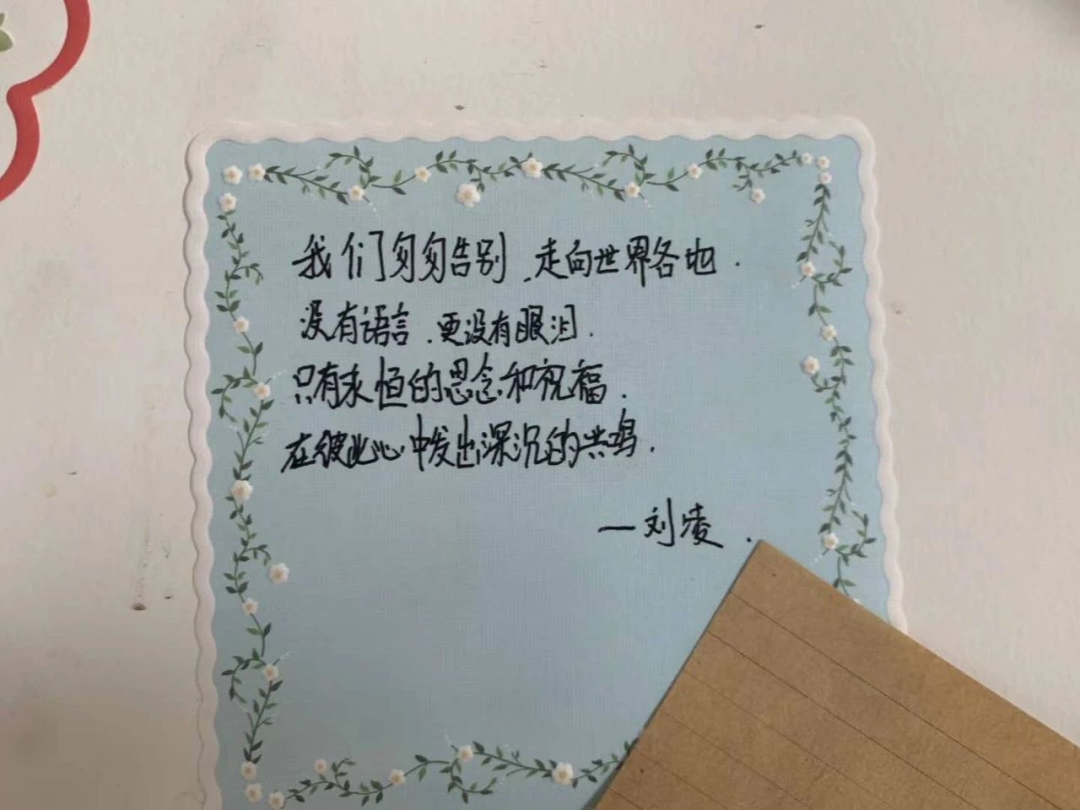 我们匆匆告别,走向世界各地.
没有语言,更没有眼泪.
只有永恒的思念和祝福.
在彼此心中发出深沉的共鸣.
—刘凌.